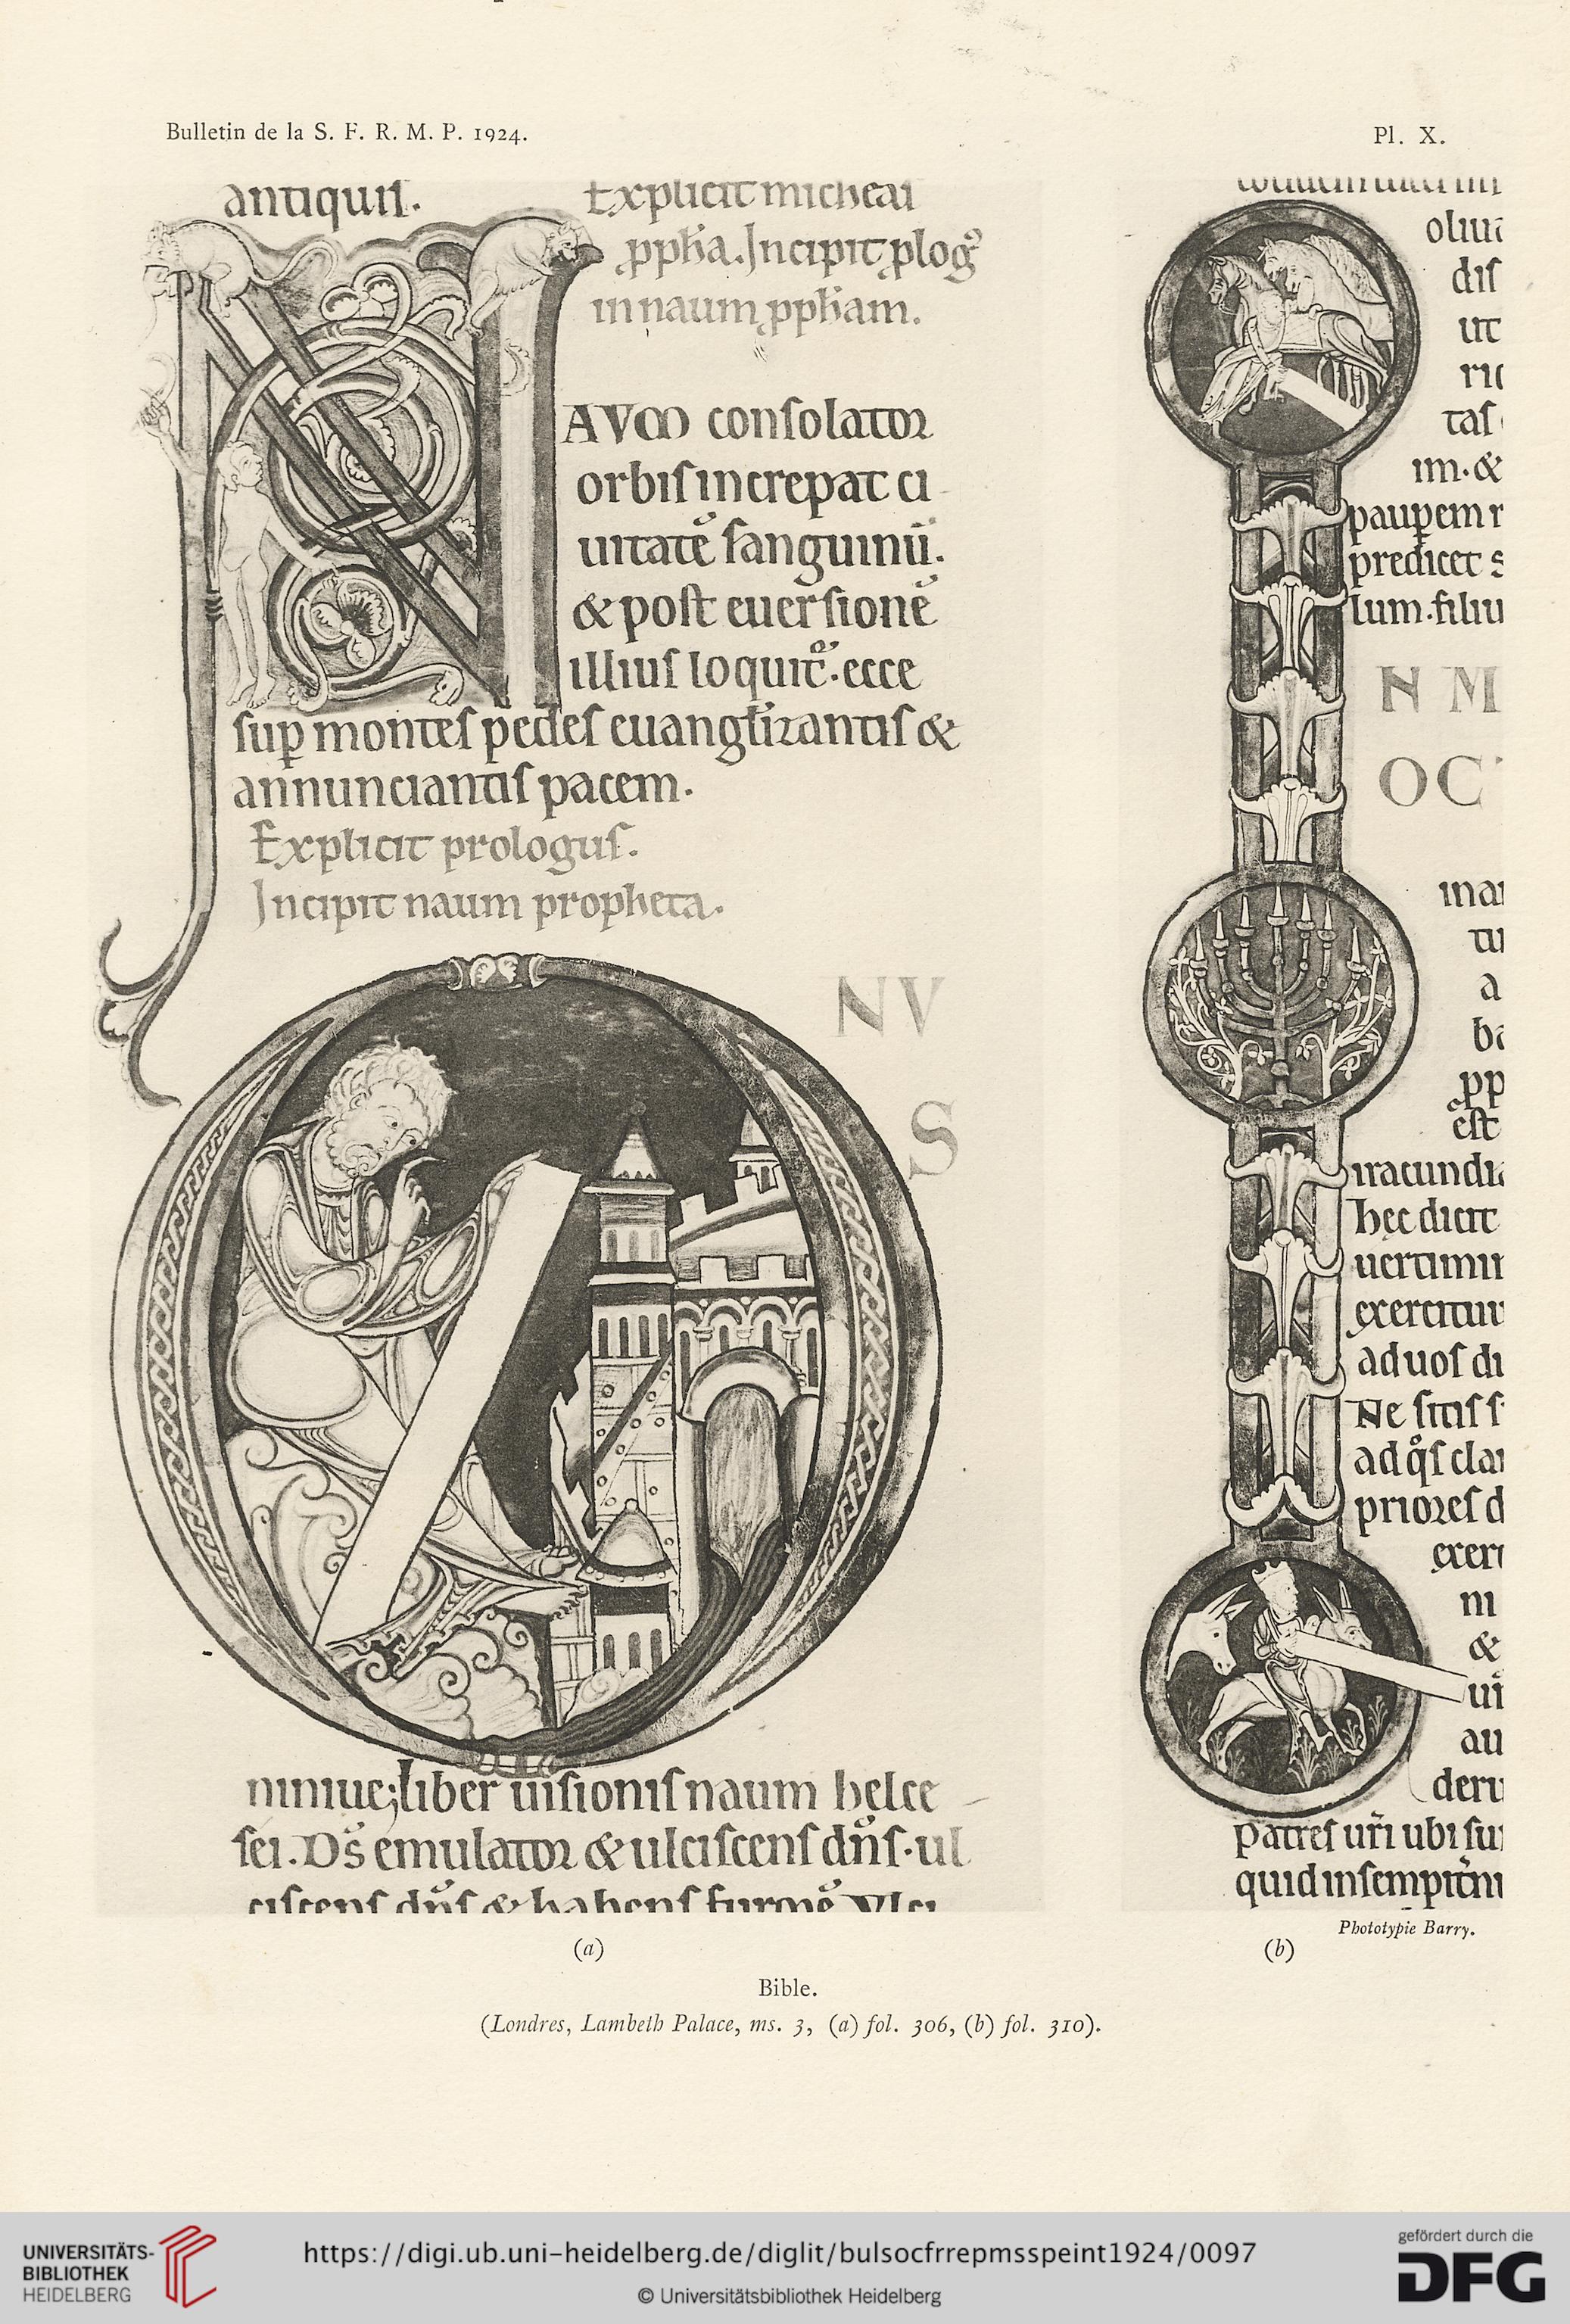 Bulletin de la S. F. R. M. P. 1924.
Pl. X.
antiquis.
Explicit micheas
ꝓph̄a. Incipit ꝓlogꝰ
in naum ꝓph̄am.
AVM consolator
orbis increpat ci
uitatē sanguinū.
& post euersionē
illius loquit̄. ecce
sup montes pedes euanglizantis &
annunciantis pacem.
Explicit prologus.
Incipit naum propheta.
NV
S
niniue; liber uisionis naum helce
sei. D̄s emulator & ulciscens dn̄s. ul
ciscens dn̄s & habens furorē Vlci
oliua
dis
ut
ric
tas
im. &
paupem r
predicet s
lum. filiu
N M
OCT
mar
tu
a
ba
ꝓp
est
iracundia
hec dicit
uertimin
exercituu
ad uos di
Ne sitis s
ad qͦs cla
priores d
exer
ni
&
ui
au
deru
patres ur̄i ubi su
quid in sempit̄ni
(a)
Phototypie Barry.
(b)
Bible.
(Londres, Lambeth Palace, ms. 3, (a) fol. 306, (b) fol. 310).
UNIVERSITÄTS-
BIBLIOTHEK
HEIDELBERG
https://digi.ub.uni-heidelberg.de/diglit/bulsocfrrepmsspeint1924/0097
© Universitätsbibliothek Heidelberg
gefördert durch die
DFG